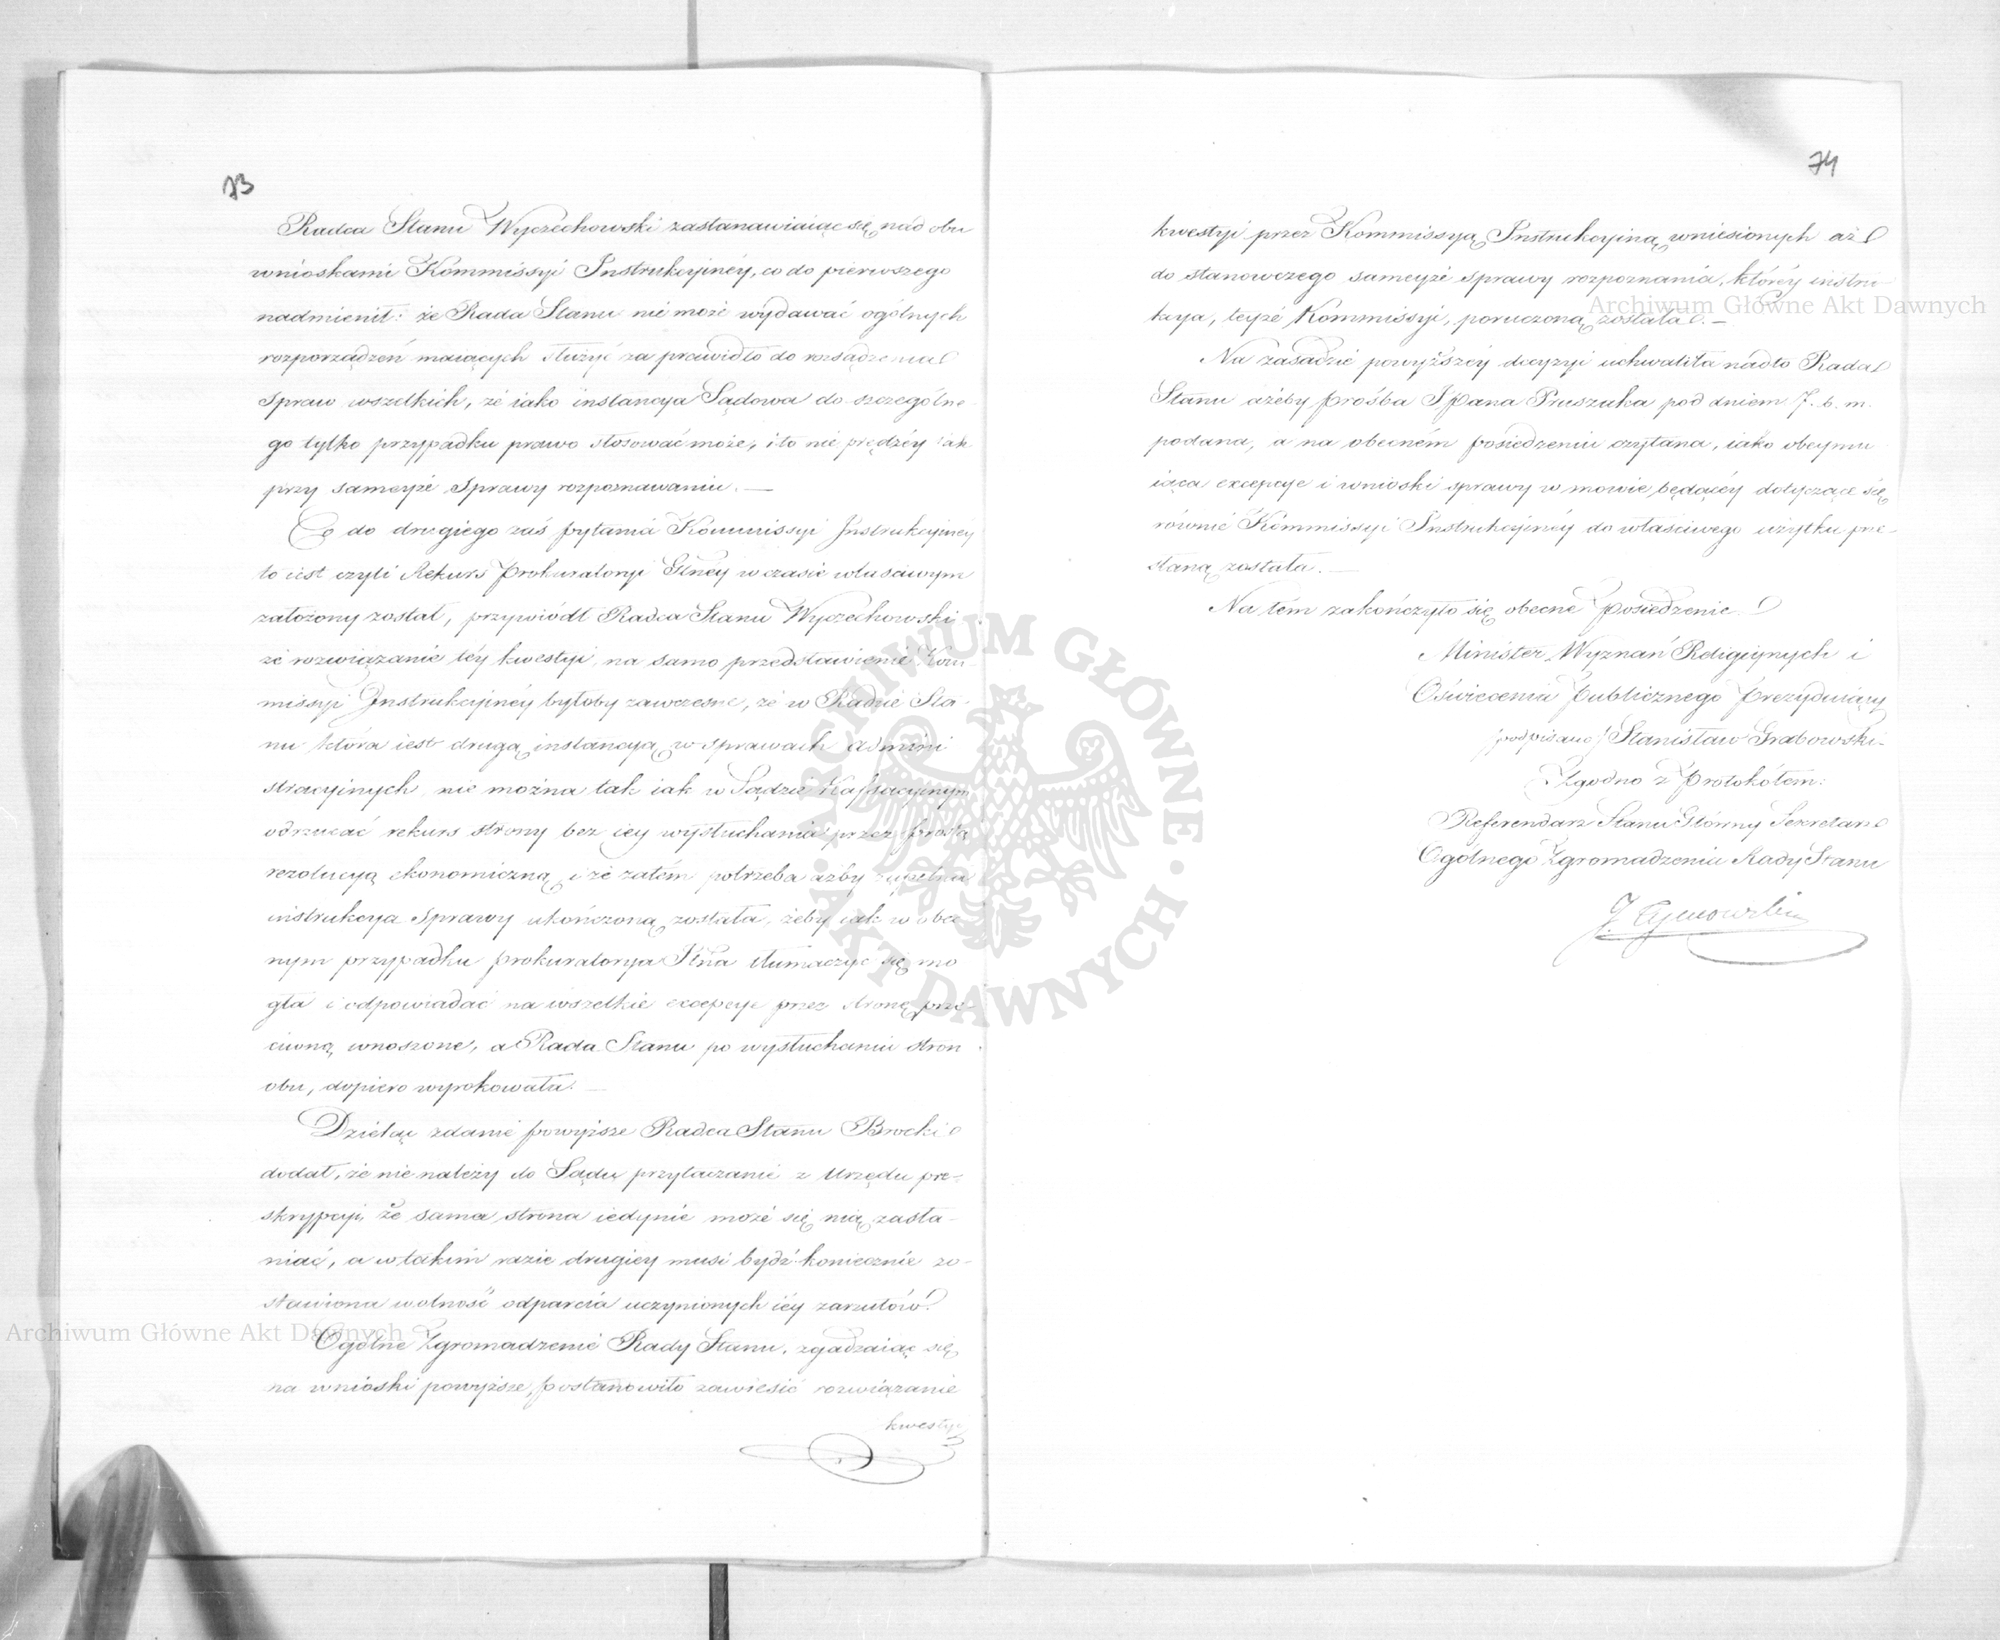 73
Radca Stanu Wyczechowski zastanawiaiąc się nad obu
wnioskami Kommissyi Instrukcyinéy, co do pierwszego
nadmienił: że Rada Stanu nie może wydawać ogólnych
rozporządzeń maiących służyć za prawidło do rozsądzenia
spraw wszelkich, że iako instancya Sądowa do szczególne-
go tylko przypadku prawo stosować może, i to nie prędzéy iak
przy sameyże Sprawy rozpoznawaniu. —
Co do drugiego zaś pytania Kommissyi Instrukcyinéy
to iest czyli Rekurs Prokuratoryi Glnéy w czasie właściwym
założony został, przywiódł Radca Stanu Wyczechowski
że rozwiązanie téy kwestyi, na samo przedstawienie Kom-
missyi Instrukcyinéy byłoby zawczesne, że w Radzie Sta-
nu która iest drugą instancyą w sprawach admini
stracyinych, nie można tak iak w Sądzie Kassacyinym
odrzucać rekurs strony bez iey wysłuchania przez prostą
rezolucyą ekonomiczną, i że zatém potrzeba ażby zupełna
instrukcya Sprawy ukończoną została, żeby iak w obec
nym przypadku Prokuratorya Glna tłumaczyć się mo
gła i odpowiadać na wszelkie excepcye przez stronę prze-
ciwną wnoszone, a Rada Stanu po wysłuchaniu stron
obu, dopiero wyrokowała. —
Dzieląc zdanie powyższe Radca Stanu Brocki
dodał, że nie należy do Sądu przytaczanie z Urzędu pre-
skrypcyi, że sama strona iedynie może się nią zasła-
niać, a w takim razie drugiey musi bydź koniecznie zo-
stawiona wolność odparcia uczynionych iéy zarzutów.
Ogólne Zgromadzenie Rady Stanu, zgadzaiąc się
na wnioski powyższe, postanowiło zawiesić rozwiązanie
kwestyi
74
kwestyi przez Kommissyą Instrukcyiną wniesionych aż
do stanowczego sameyże Sprawy rozpoznania, któréy instru-
kcya, teyże Kommissyi, poruczoną została. —
Na zasadzie powyższéy decyzyi uchwaliła nadto Rada
Stanu ażeby prośba JPana Pruszaka pod dniem 7. b. m.
podana, a na obecném posiedzeniu czytana, iako obeymu
iąca excepcye i wnioski sprawy w mowie będącéy dotyczące się
równie Kommissyi Instrukcyinéy do właściwego użytku prze-
słaną została. —
Na tém zakończyło się obecne posiedzenie.
Minister Wyznań Religiynych i
Oświecenia Publicznego Prezyduiący
/podpisano/ Stanisław Grabowski.
Zgodno z Protokółem:
Referendarz Stanu Główny Sekretarz
Ogólnego Zgromadzenia Rady Stanu
J. Tymowski
Archiwum Główne Akt Dawnych
Archiwum Główne Akt Dawnych
ARCHIWUM GŁÓWNE · AKT DAWNYCH ·